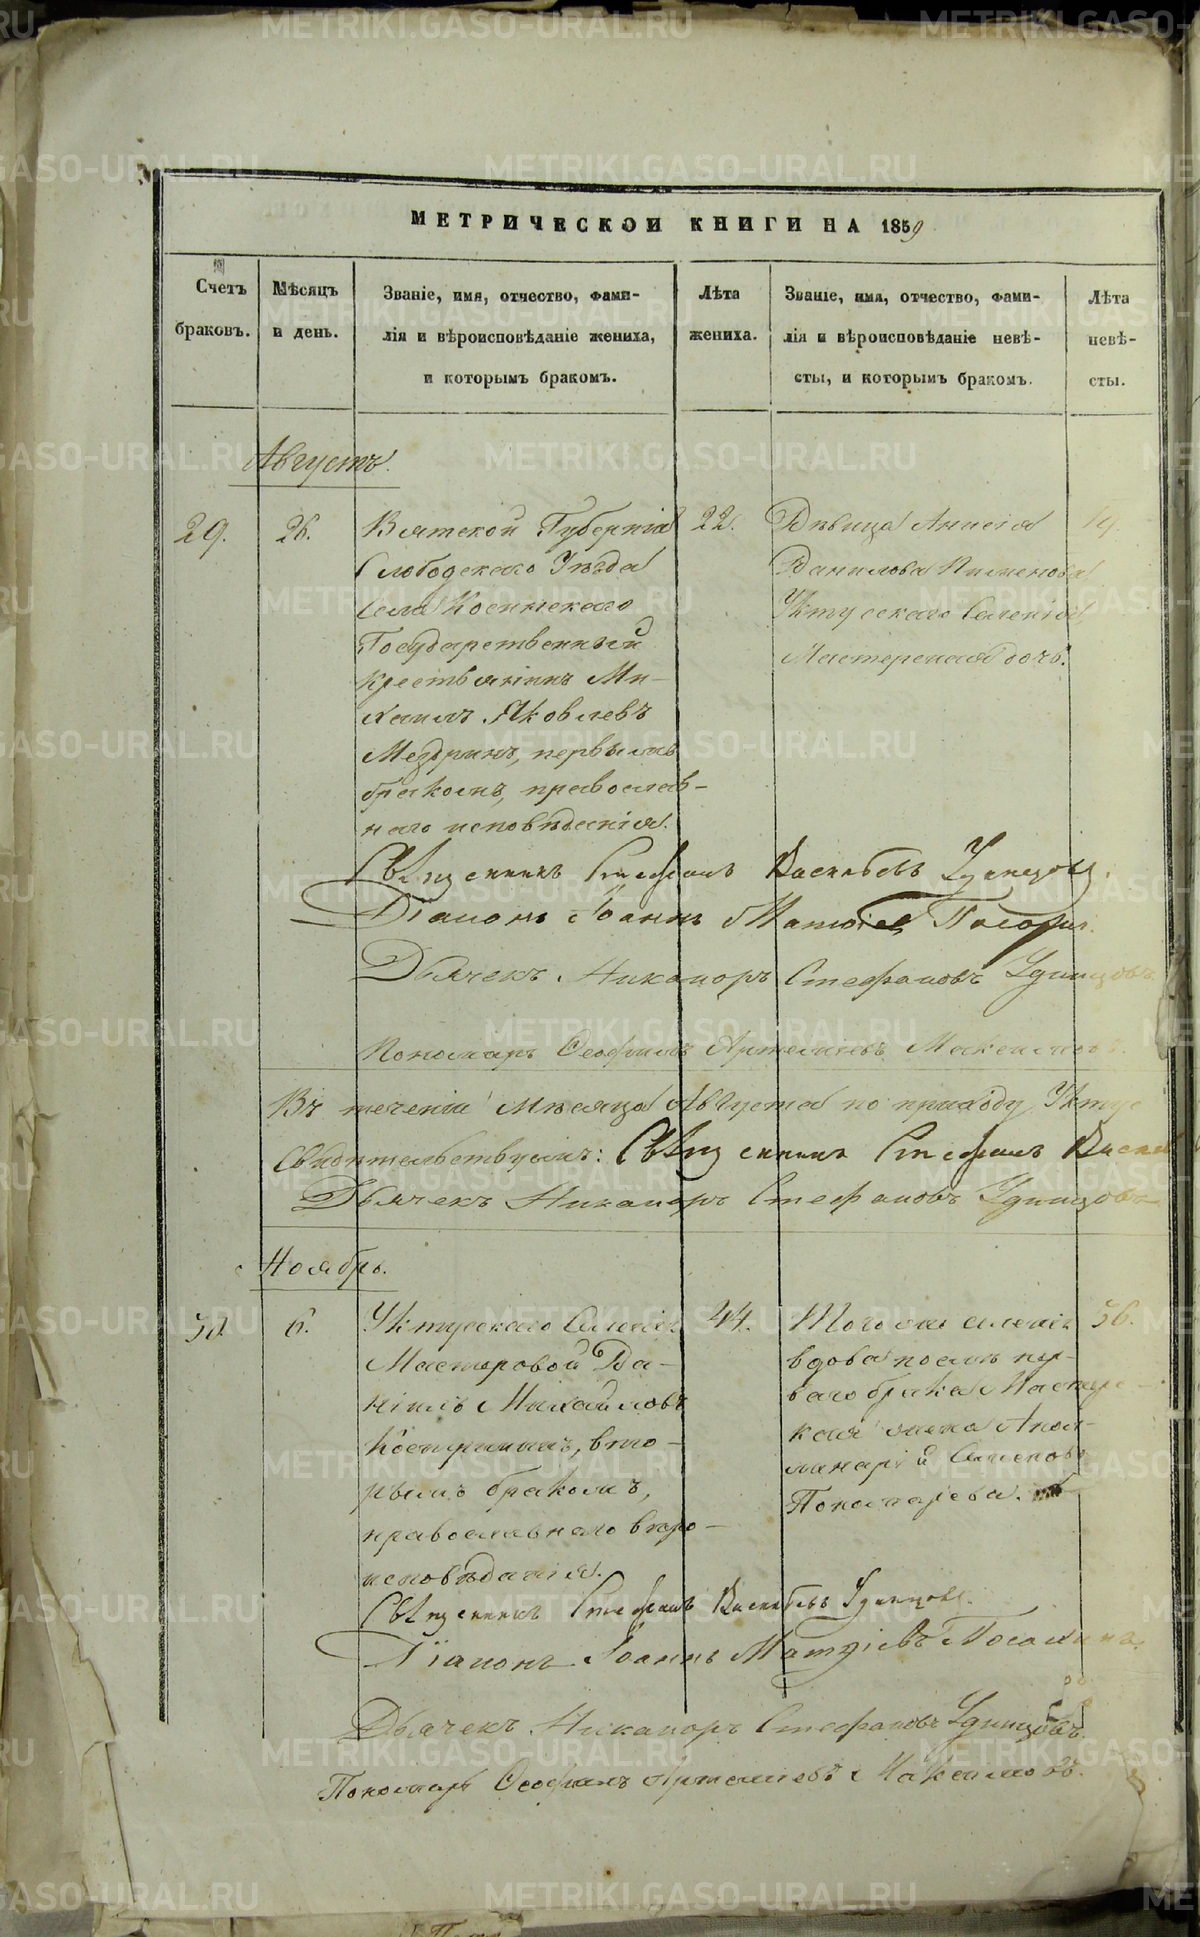 МЕТРИЧЕСКОЙ КНИГИ НА 1859
Счетъ браковъ.
Мѣсяцъ и день.
Званіе, имя, отчество, фами-
лія и вѣроисповѣданіе жениха,
и которымъ бракомъ.
Лѣта жениха.
Званіе, имя, отчество, фами-
лія и вѣроисповѣданіе невѣ-
сты, и которымъ бракомъ.
Лѣта невѣ-
сты.
Августъ.
29.
26.
Вятской Губерніи
Слободскаго Уѣзда
Села Косинскаго
Государственный
крестьянинъ Ми-
хаилъ Яковлевъ
Мездринъ, первымъ
бракомъ, православ-
наго исповѣданія.
22.
Дѣвица Анисія
Данилова Пименова
Уктусскаго Селенія
Мастерская дочь.
19.
Священникъ Стефанъ Васильевъ Удинцовъ.
Діаконъ Іоаннъ Матѳіевъ
Дьячекъ Никаноръ Стефановъ Удинцовъ
Пономарь Ѳеофилъ Артеміевъ Максимовъ
Въ теченіи мѣсяца Августа по приходу Укту
Свидѣтельствуемъ: Священникъ Стефанъ Васил
Дьячекъ Никаноръ Стефановъ Удинцовъ
Ноябрь.
30.
6.
Уктусскаго Селенія
Мастеровой Да-
ніилъ Михайловъ
Костринъ, вто-
рымъ бракомъ,
православнаго вѣро-
исповѣданія.
44.
Того же селенія
вдова послѣ пер-
ваго брака Мастер-
ская жена Апол-
линарія Семенова
Пономарева.
36.
Священникъ Стефанъ Васильевъ Удинцовъ.
Діаконъ Іоаннъ Матѳіевъ
Дьячекъ Никаноръ Стефановъ Удинцовъ.
Пономарь Ѳеофилъ Артеміевъ Максимовъ.
METRIKI.GASO-URAL.RU